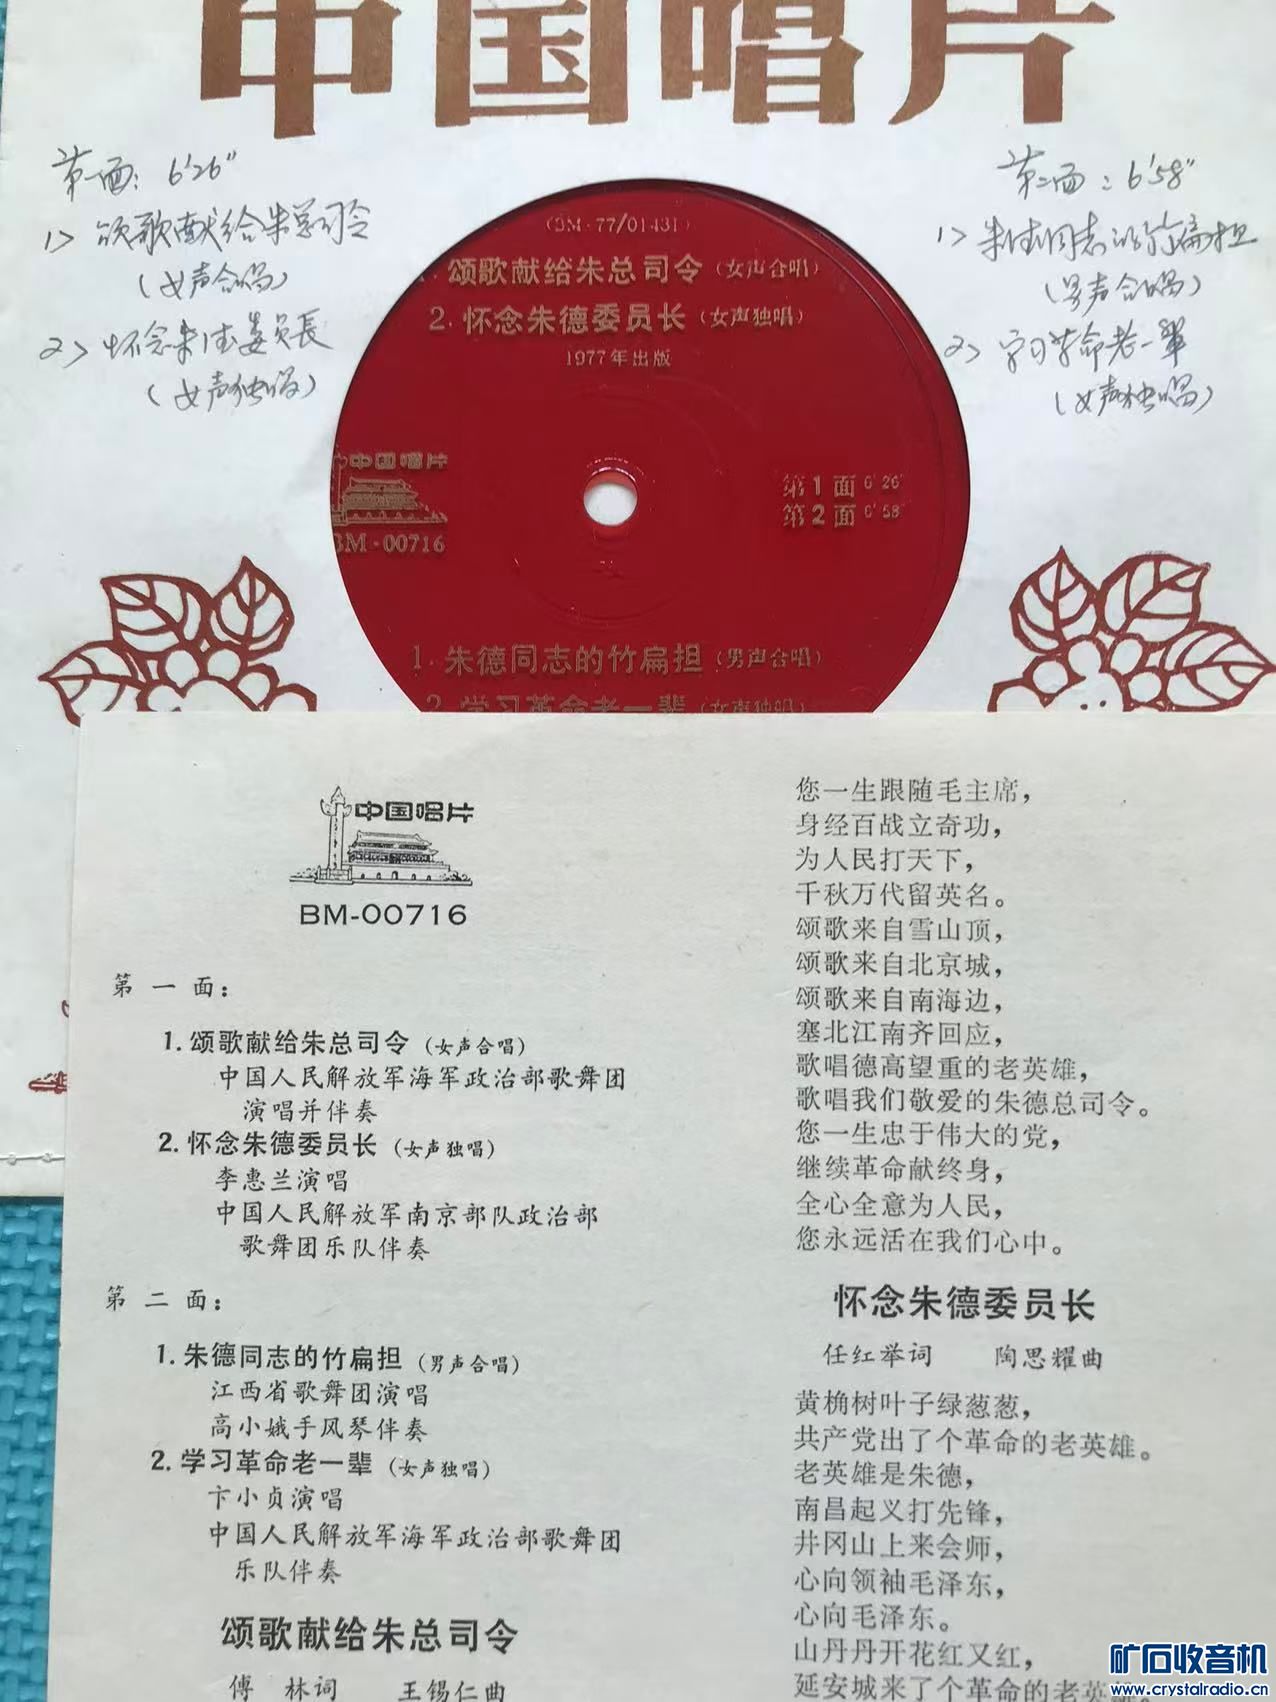 中国唱片
第一面：6'26"
1> 颂歌献给朱总司令
(女声合唱)
2> 怀念朱德委员長
(女声独唱)
第二面：6'58"
1> 朱德同志的竹扁担
(男声合唱)
2> 学习革命老一辈
(女声独唱)
(BM-77/01431)
1. 颂歌献给朱总司令 (女声合唱)
2. 怀念朱德委员长 (女声独唱)
1977年出版
中国唱片
BM-00716
第1面 6'26"
第2面 6'58"
1. 朱德同志的竹扁担 (男声合唱)
2. 学习革命老一辈 (女声独唱)
中国唱片
BM-00716
第一面：
1. 颂歌献给朱总司令 (女声合唱)
中国人民解放军海军政治部歌舞团
演唱并伴奏
2. 怀念朱德委员长 (女声独唱)
李惠兰演唱
中国人民解放军南京部队政治部
歌舞团乐队伴奏
第二面：
1. 朱德同志的竹扁担 (男声合唱)
江西省歌舞团演唱
高小娥手风琴伴奏
2. 学习革命老一辈 (女声独唱)
卞小贞演唱
中国人民解放军海军政治部歌舞团
乐队伴奏
颂歌献给朱总司令
傅 林词 王锡仁曲
您一生跟随毛主席，
身经百战立奇功，
为人民打天下，
千秋万代留英名。
颂歌来自雪山顶，
颂歌来自北京城，
颂歌来自南海边，
塞北江南齐回应，
歌唱德高望重的老英雄，
歌唱我们敬爱的朱德总司令。
您一生忠于伟大的党，
继续革命献终身，
全心全意为人民，
您永远活在我们心中。
怀念朱德委员长
任红举词 陶思耀曲
黄桷树叶子绿葱葱，
共产党出了个革命的老英雄。
老英雄是朱德，
南昌起义打先锋，
井冈山上来会师，
心向领袖毛泽东，
心向毛泽东。
山丹丹开花红又红，
延安城来了个革命的老英雄
矿石收音机
www.crystalradio.cn